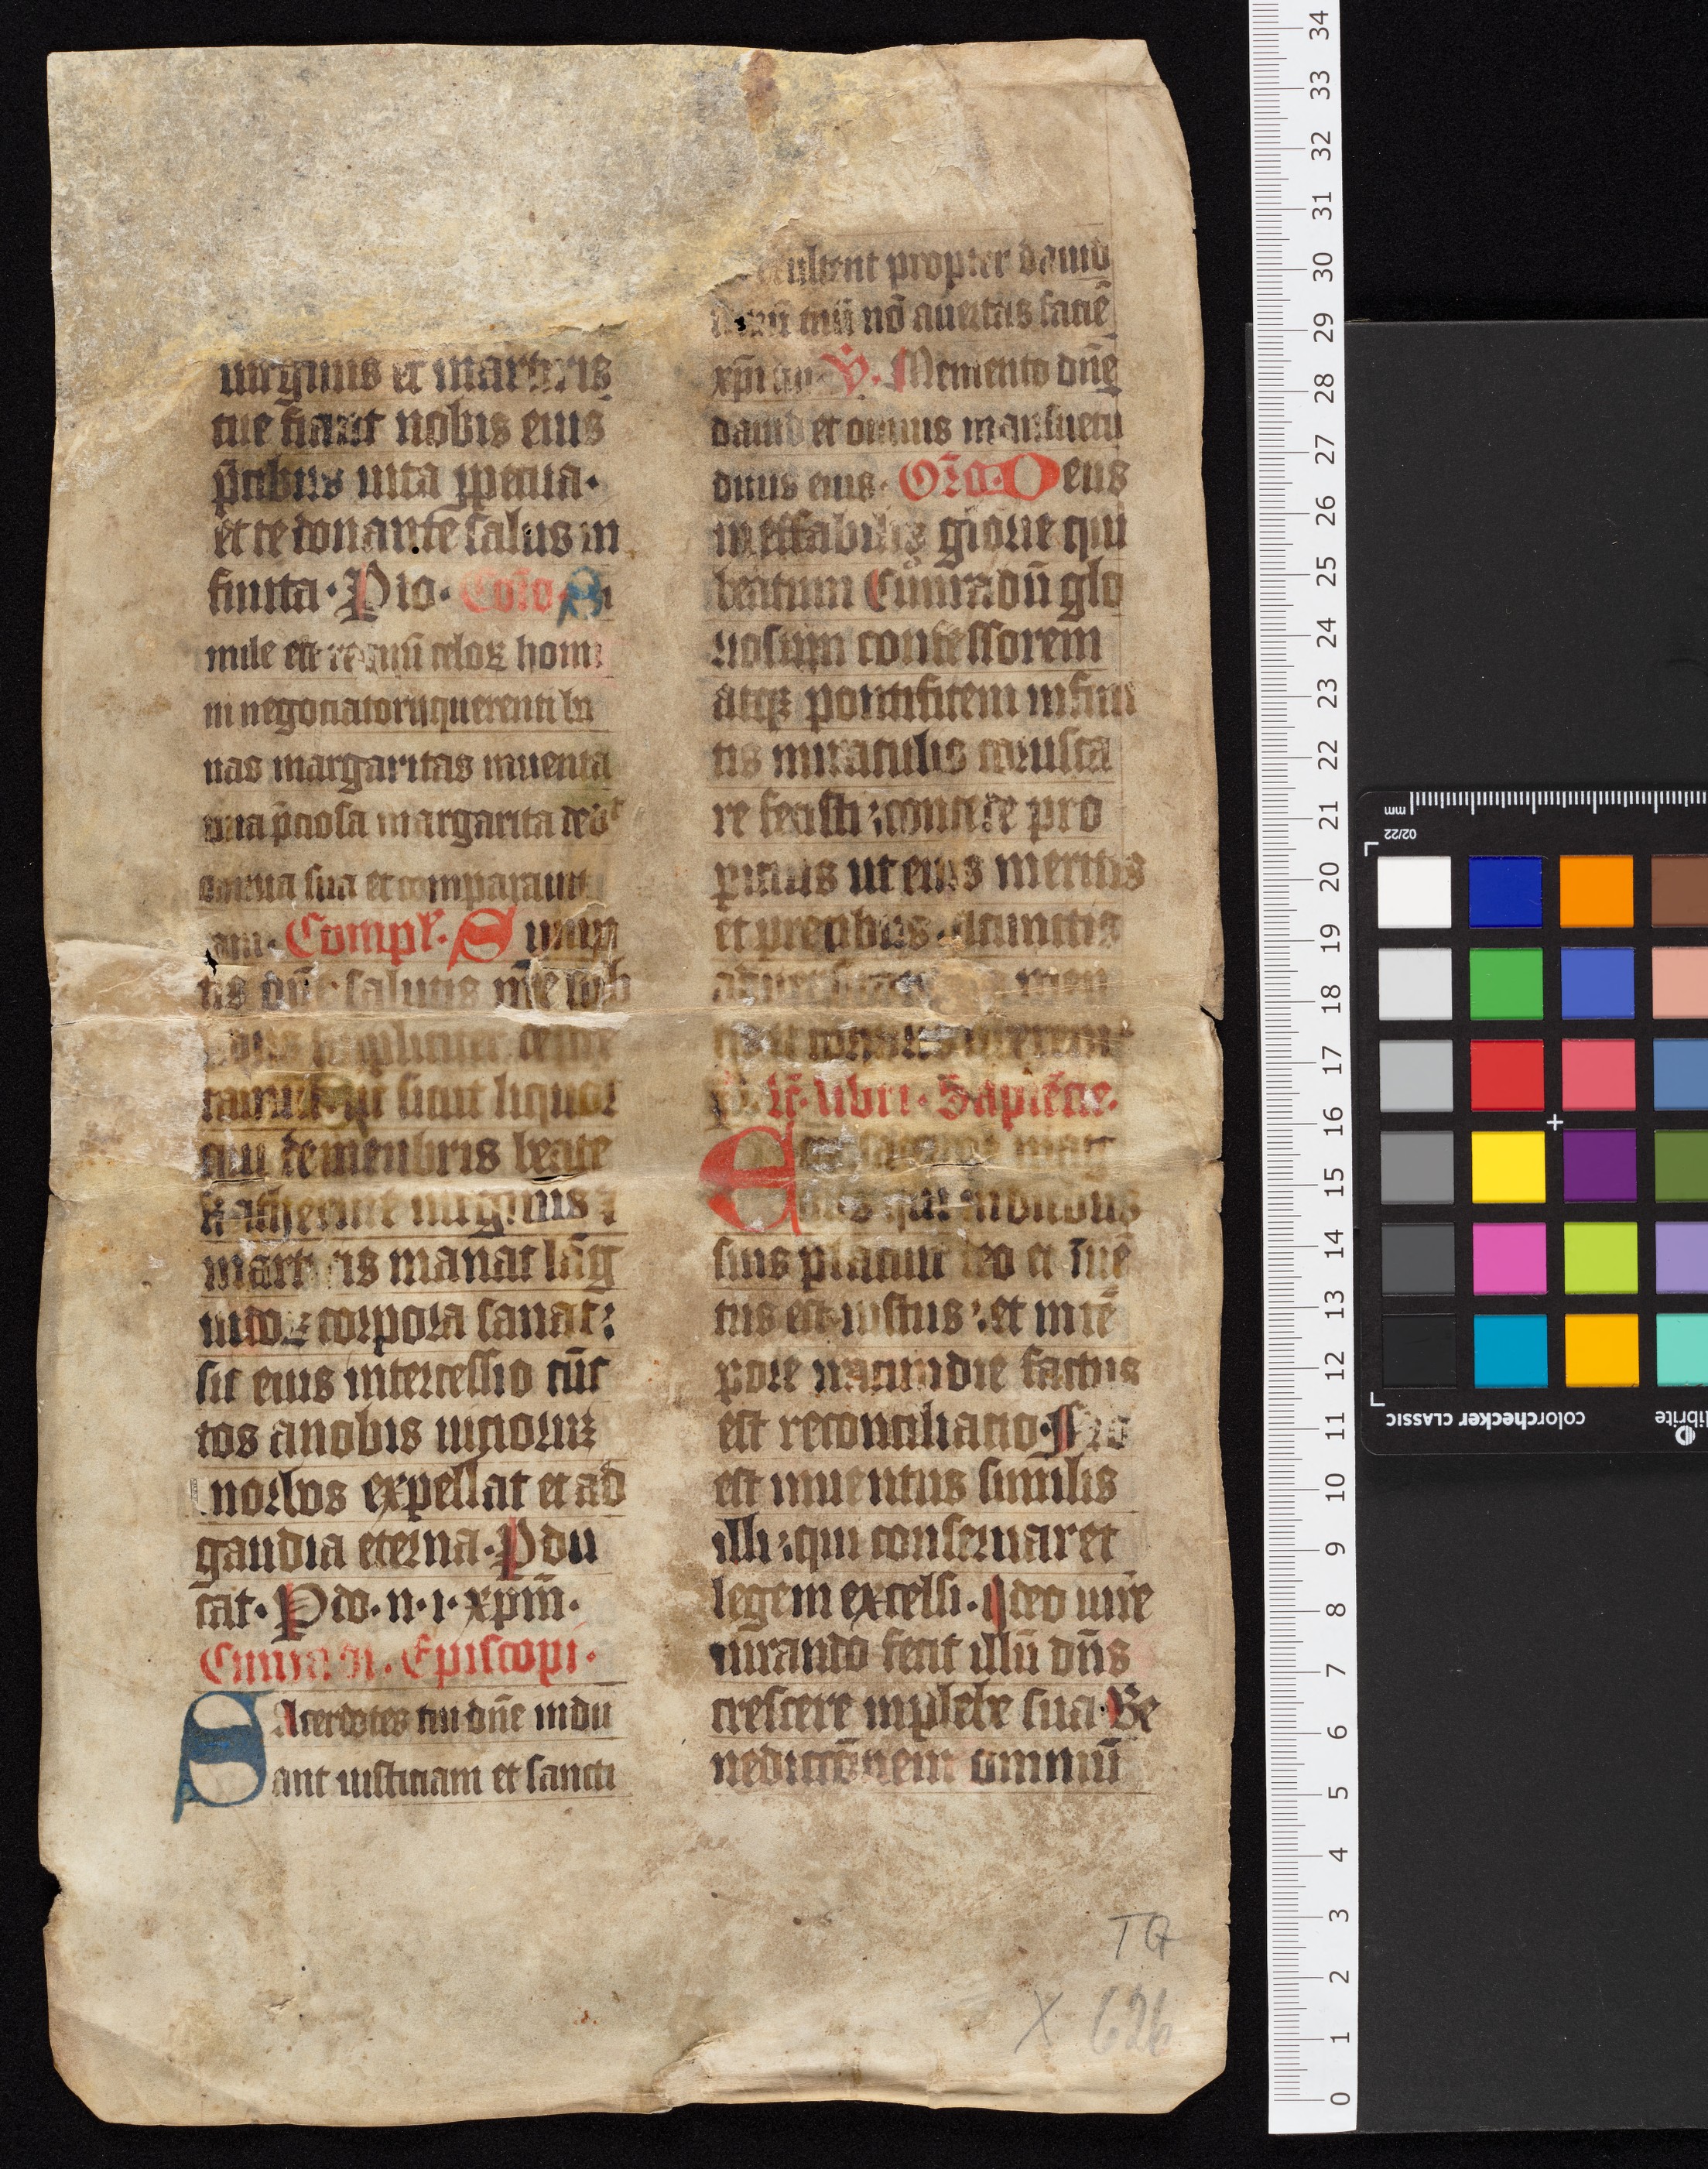 uirginis et martiris
tue fiant nobis eius
p̄cibus uita ꝑpetua·
et te donante salus in
finita· Pro· Co͞io· Si
mile est regnū celoꝝ homi
ni negotiatori querenti bo
nas margaritas inuenta
una p̄ciosa margarita dedit
omnia sua et comparauit
eam· Compl̄· Sumptis
tis dn̄e salutis nr̄e
sicut liquor
qui de membris beate
katherine uirginis ⁊
martiris manat lāg
uidoꝝ corpora sanat:
sic eius intercessio cūc
tos anobis uicioruꝫ
morbos expellat et ad
gaudia eterna· Pdu
cat· P do· n· i· xpm̄·
Cunradi· Episcopi·
SAcerdotes tui dn̄e indu
ant iusticiam et sancti
exultent propter dauid
seruū tuū nō auertas faciē
xp̄i tui V̄· Memento dn̄e
dauid et omnis mansuetu
dinis eius· Or̄o· Deus
ineffabilis glorie qui
beatum Cūnradū glo
riosum confessorem
atqꝫ pontificem infini
tis miraculis corusca
re fecisti: concede pro
picius ut eius meritis
et precibus· acunctis
P· lc̄· libri· Sapiēcie·
Ecce sacerdos mag
nus qui in diebus
suis placuit deo et īuē
tus est iustus: et in tē
pore iracundie factus
est reconciliatio· Nō
est inuentus similis
illi: qui conseruaret
legem excelsi· Ideo iure
iurando fecit illū dn̄s
crescere inplebe sua· Be
nedictōnem omniū
TQ
X 626
34
33
32
31
30
29
28
27
26
25
24
23
22
21
20
19
18
17
16
15
14
13
12
11
10
9
8
7
6
5
4
3
2
1
0
mm
02/22
colorchecker CLASSIC
librite